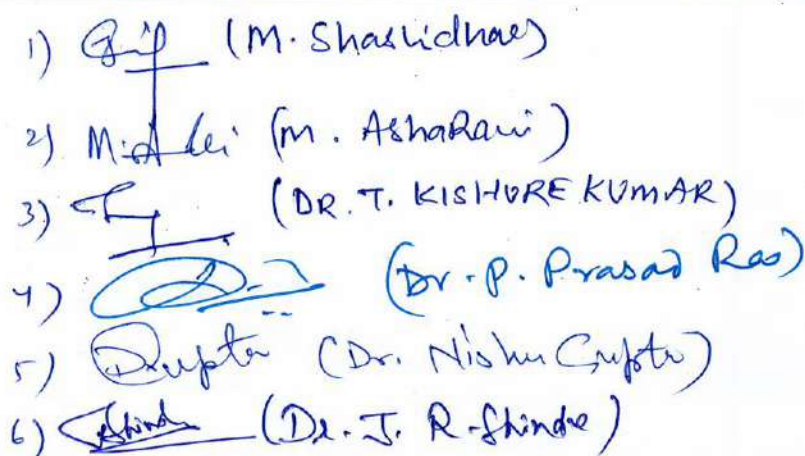 1) (M. Shashidhar)
2) M. A (M. AshaRani)
3) (DR. T. KISHORE KUMAR)
4) (Dr. P. Prasad Rao)
5) Gupta (Dr. Nishu Gupta)
6) Shinde (Dr. J. R. Shinde)